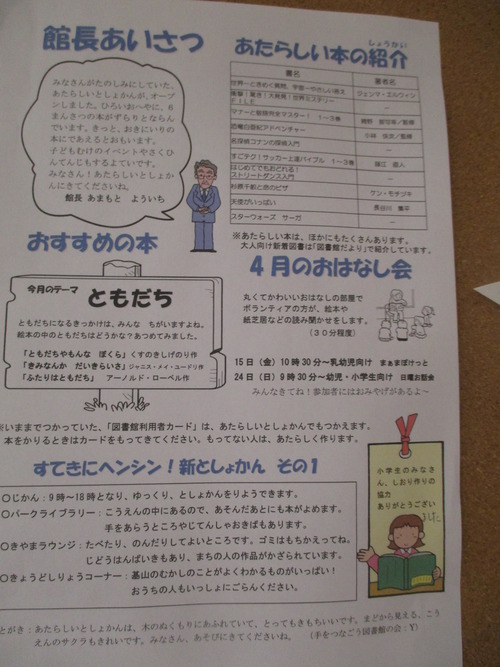 館長あいさつ
みなさんがたのしみにしていた、
あたらしいとしょかんが、オープ
ンしました。ひろいおへやに、6
まんさつの本がずらりとならん
でいます。きっと、おきにいりの
本にであえるとおもいます。
子どもむけのイベントやさくひ
んてんじもするよていです。
みなさん！あたらしいとしょか
んにきてくださいね。
館長 あまもと よういち
あたらしい本の紹介
しょうかい
書名
著者名
世界一ときめく質問、宇宙一やさしい答え
ジェンマ・エルウィン
衝撃！驚き！大発見！世界ミステリー
ＦＩＬＥ
―
マナーと敬語完全マスター！ 1～3巻
恐竜白亜紀アドベンチャー
小林 快次／監修
名探偵コナンの探偵入門
―
すごテク！サッカー上達バイブル 1～3巻
はじめてでもおどれる！
ストリートダンス入門
―
杉原千畝と命のビザ
ケン・モチヅキ
天使がいっぱい
スターウォーズ サーガ
―
※あたらしい本は、ほかにもたくさんあります。
大人向け新着図書は「図書館だより」で紹介しています。
おすすめの本
今月のテーマ
ともだち
ともだちになるきっかけは、みんな ちがいますよね。
絵本の中のともだちはどうかな？あつめてみました。
「ともだちやもんな ぼくら」くすのきしげのり作
「きみなんか だいきらいさ」ジャニス・メイ・ユードリ作
「ふたりはともだち」 アーノルド・ローベル作
4月のおはなし会
丸くてかわいいおはなしの部屋で
ボランティアの方が、絵本や
紙芝居などの読み聞かせをします。
（30分程度）
15日（金）10時30分～乳幼児向け まぁまぽけっと
24日（日）9時30分～幼児・小学生向け 日曜お話会
みんなきてね！参加者にはおみやげがあるよ～
※いままでつかっていた、「図書館利用者カード」は、あたらしいとしょかんでもつかえます。
本をかりるときはカードをもってきてください。もってない人は、あたらしく作ります。
すてきにヘンシン！新としょかん その1
○じかん：9時～18時となり、ゆっくり、としょかんをりようできます。
○パークライブラリー：こうえんの中にあるので、あそんだあとにも本がよめます。
手をあらうところやじてんしゃおきばもあります。
○きやまラウンジ：たべたり、のんだりしてよいところです。ゴミはもちかえってね。
じどうはんばいきもあり、まちの人の作品がかざられています。
○きょうどしりょうコーナー：基山のむかしのことがよくわかるものがいっぱい！
おうちの人もいっしょにごらんください。
小学生のみなさ
ん、しおり作りの
協力
ありがとうござい
とがき：あたらしいとしょかんは、木のぬくもりにあふれていて、とってもきもちいいです。まどから見える、こう
えんのサクラもきれいです。みなさん、あそびにきてくださいね。 （手をつなごう図書館の会：Y）